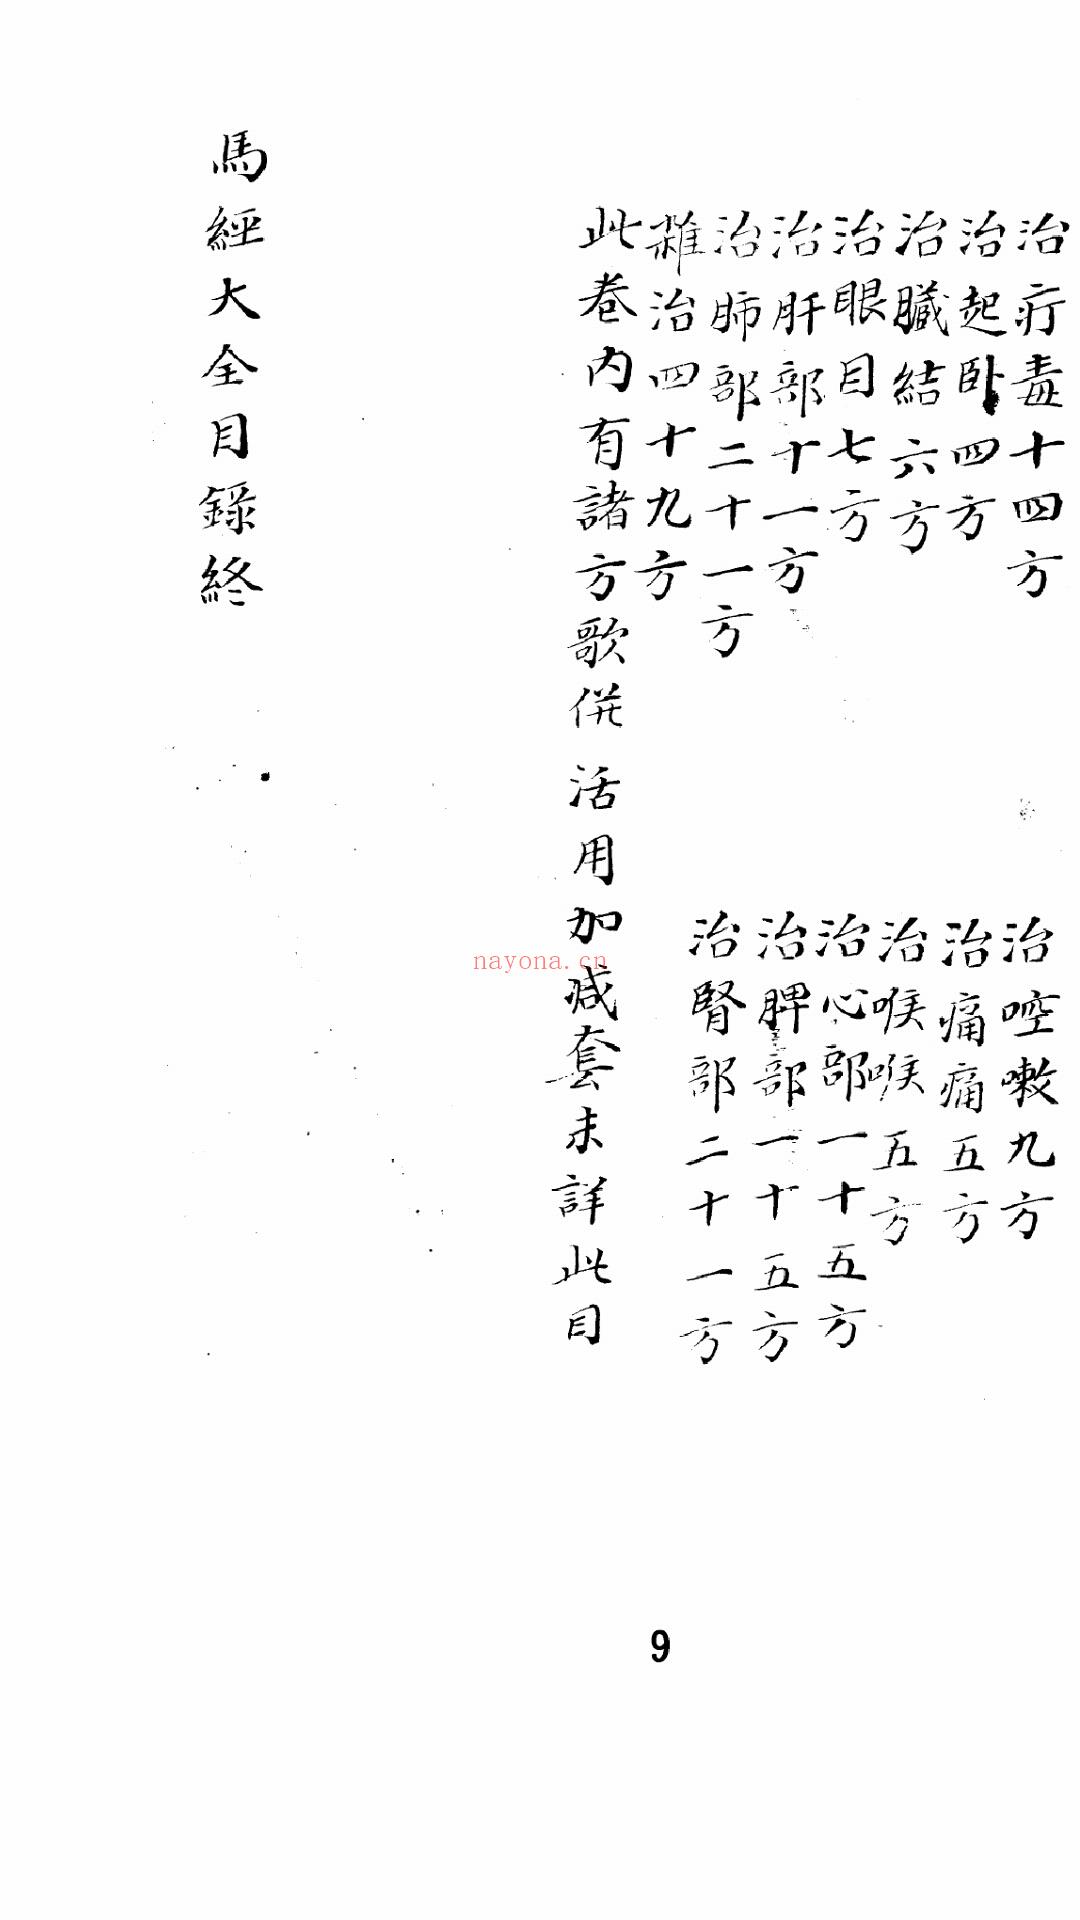 治疔毒十四方
治啌嗽九方
治起卧四方
治痛痛五方
治臟結六方
治喉喉五方
治眼目七方
治心部一十五方
治肝部十一方
治脾部一十五方
治肺部二十一方
治腎部二十一方
雜治四十九方
此卷内有諸方歌併活用加减套未詳此目
馬經大全目錄終
nayona.cn
9